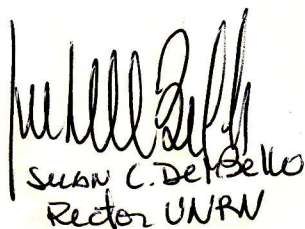 JUAN C. Del Bello
Rector UNRN